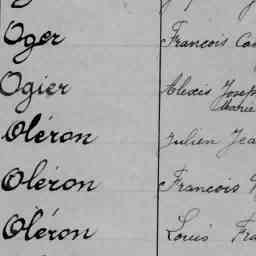 Oger François
Ogier Alexis Joseph
Marie
Oléron Julien
Oléron François
Oléron Louis